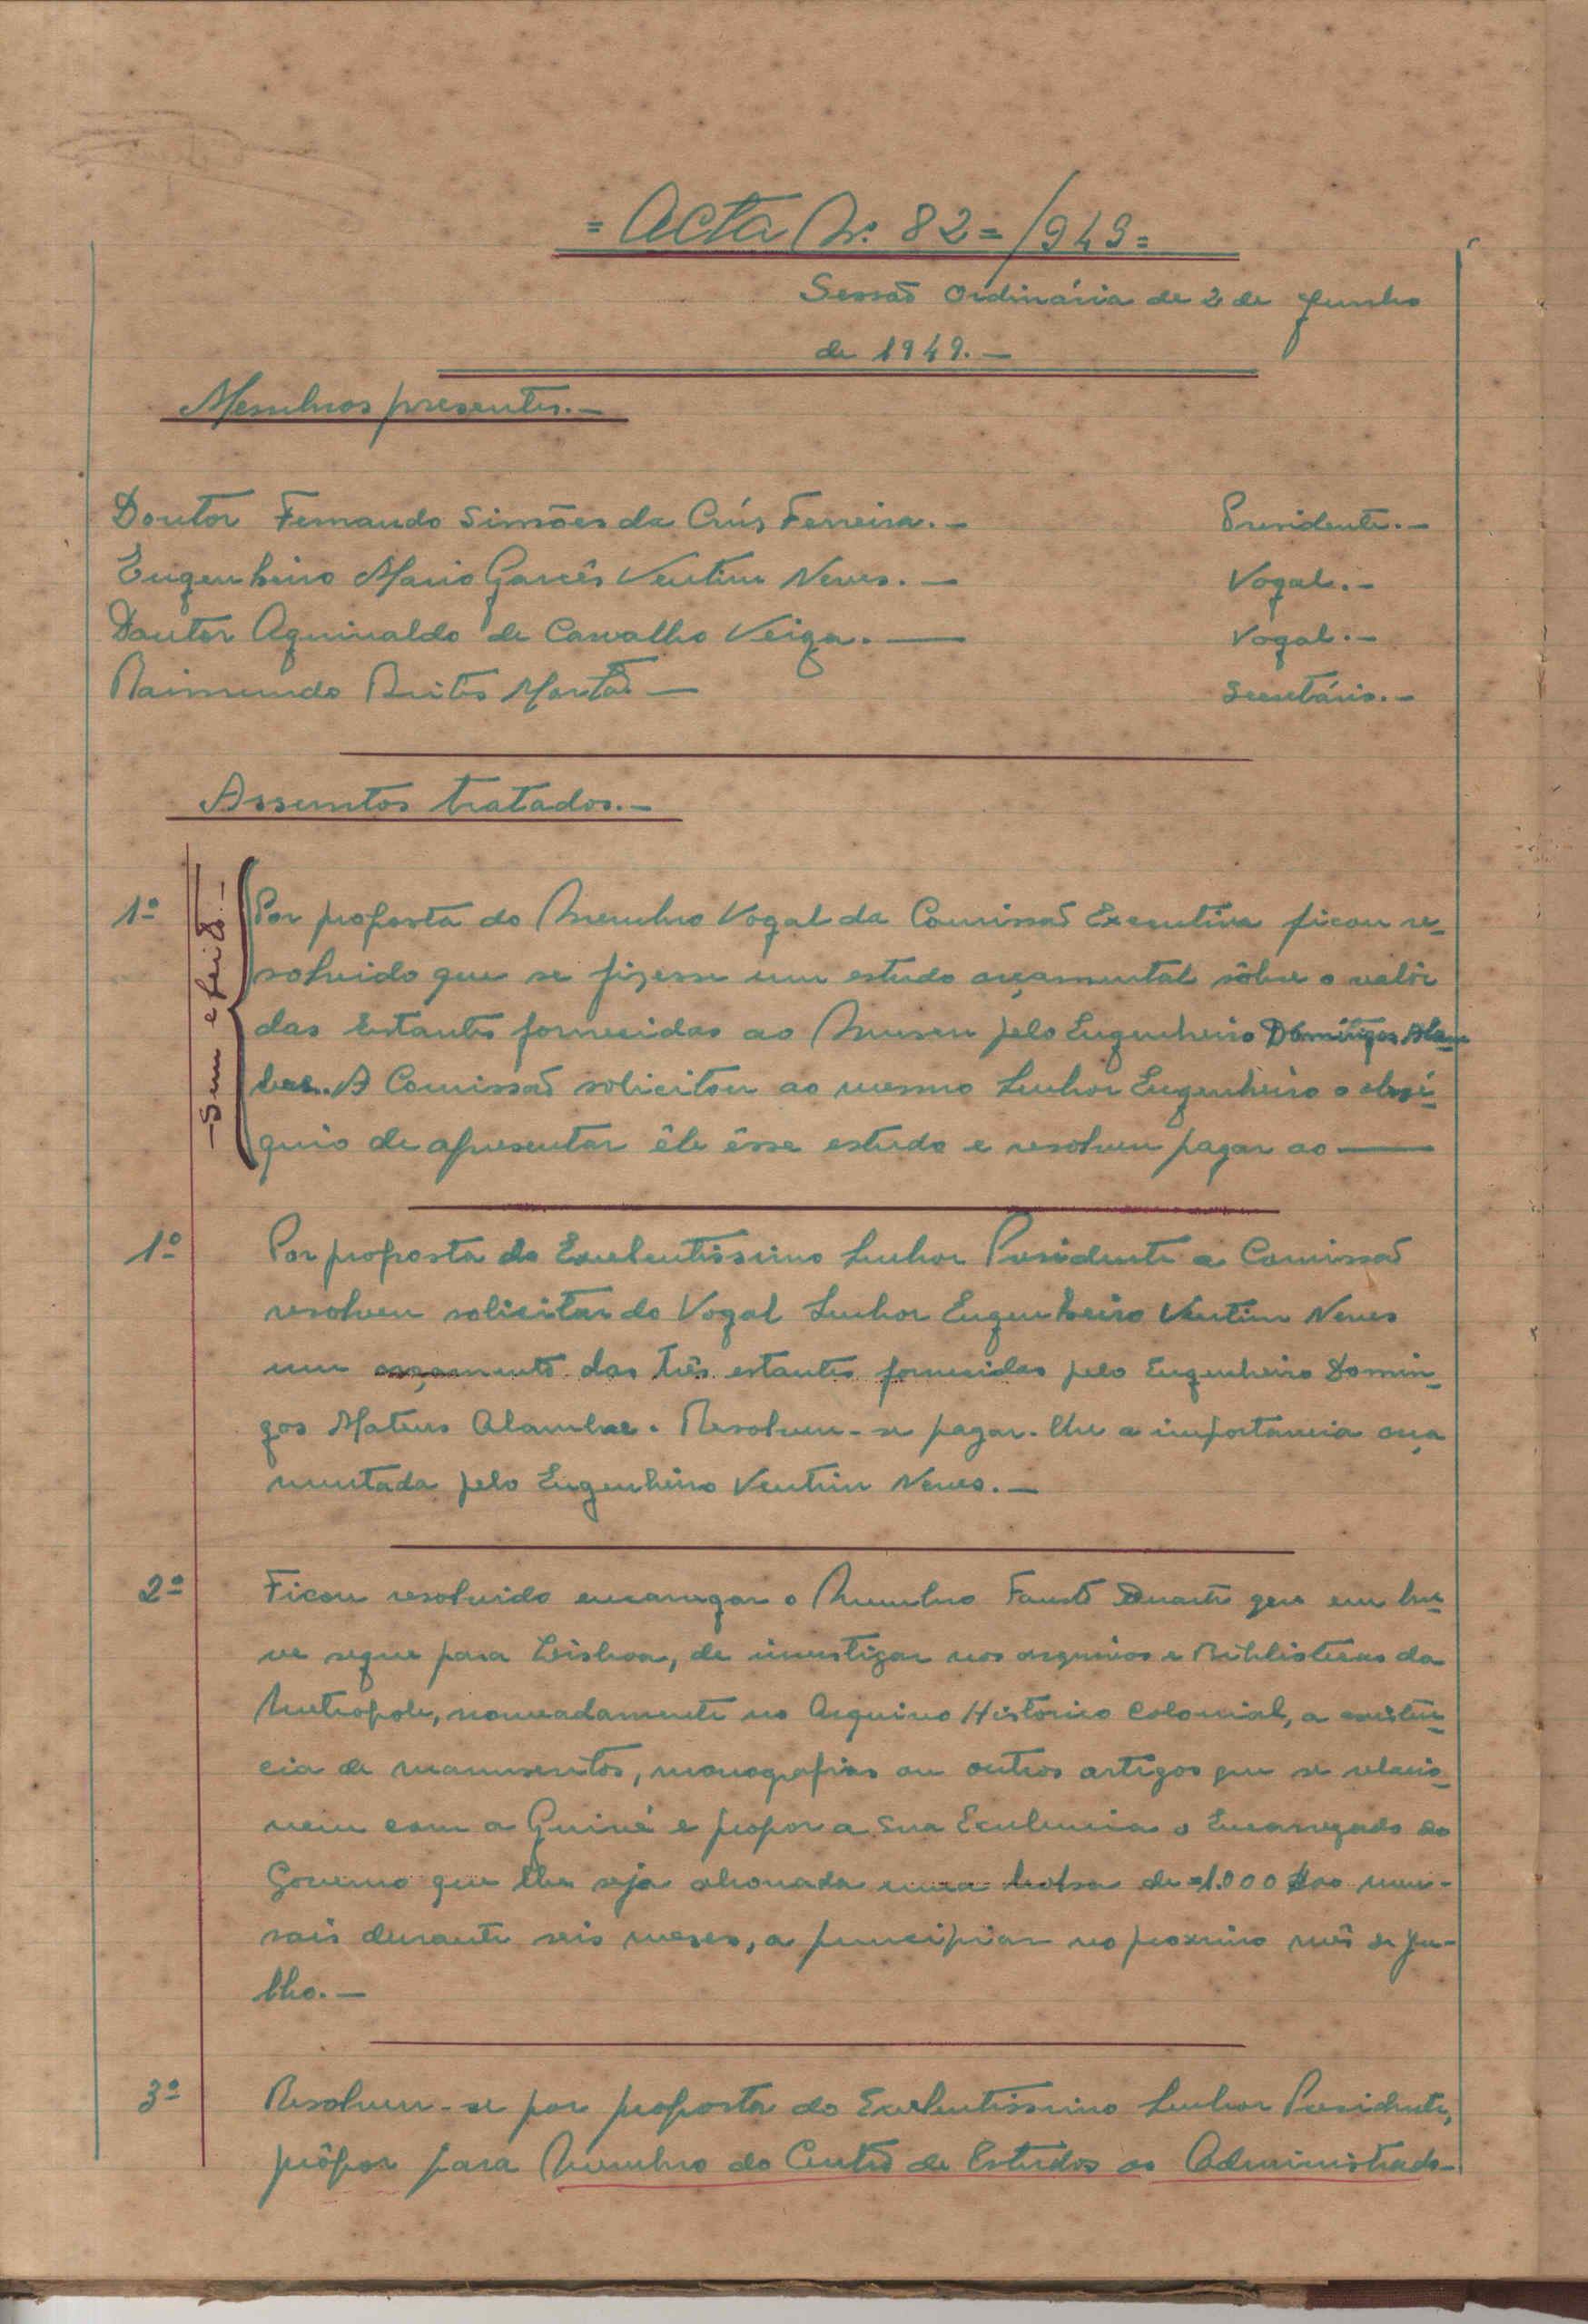 = Acta Nº. 82=/949=
Sessão Ordinária de 2 de Junho
de 1949.—
Membros presentes.—
Doutor Fernando Simões da Crús Ferreira.— Presidente.—
Engenheiro Mario Garcês Ventim Neves.— Vogal.—
Doutor Aguinaldo de Carvalho Veiga.— Vogal.—
Raimundo Brites Montão— Secretário.—
Assuntos tratados.—
—Sem efeito—
1º Por proposta do Membro Vogal da Comissão Executiva ficou re-
solvido que se fizesse um estudo orçamental sôbre o valôr
das Estantes fornecidas ao Museu pelo Engenheiro Domingos Alam-
bre. A Comissão solicitou ao mesmo Senhor Engenheiro o obsé-
quio de apresentar êle êsse estudo e resolveu pagar ao —
1º Por proposta do Excelentissimo Senhor Presidente a Comissão
resolveu solicitar do Vogal Senhor Engenheiro Ventim Neves
um orçamento das três estantes fornecidas pelo Engenheiro Domin-
gos Mateus Alambre. Resolveu-se pagar-lhe a importancia orça
mentada pelo Engenheiro Ventim Neves.—
2º Ficou resolvido encarregar o Membro Fausto Duarte que em bre-
ve segue para Lisboa, de investigar nos arquivos e Bibliotecas da
Metropole, nomeadamente no Arquivo Historico Colonial, a existên-
cia de manuscritos, monografias ou outros artigos que se relacio-
nem com a Guiné e propor a Sua Excelencia o Encarregado do
Governo que lhe seja abonada uma bolsa de =1.000$00 men-
sais durante seis meses, a principiar no proximo mês de Ju-
lho.—
3º Resolveu-se por proposta do Excelentissimo Senhor Presidente,
prôpor para Membro do Centro de Estudos ao Administrado-